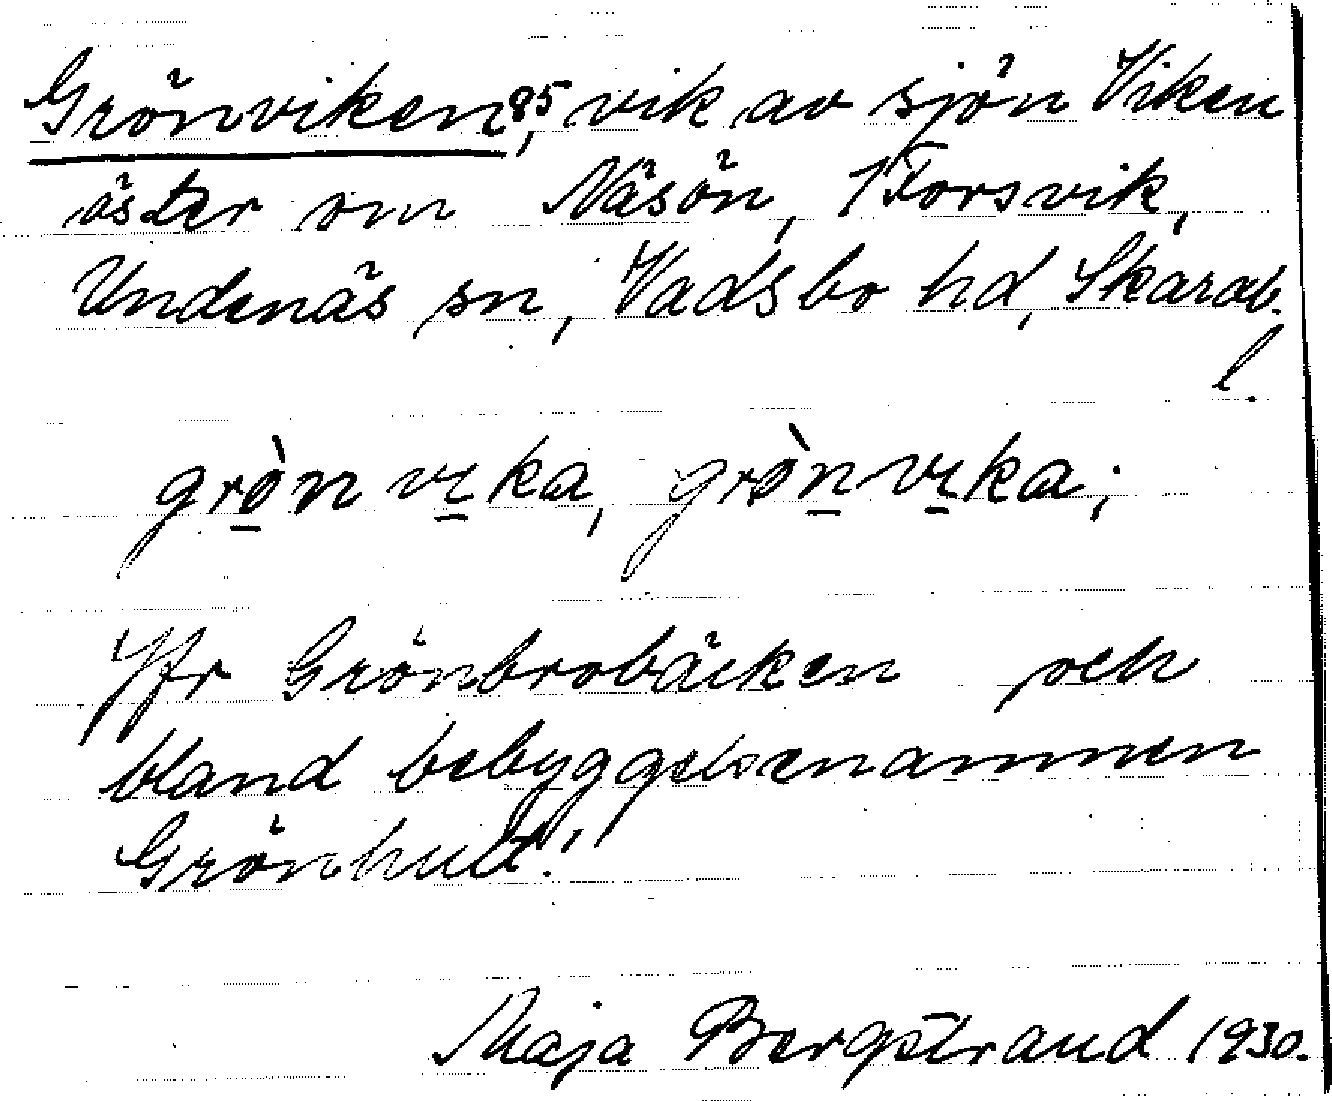 Grönviken⁸⁵, vik av sjön Viken
öster om Näsön, 1 Forsvik,
Undenäs sn, Vadsbo hd, Skarab.
l.
grö̀n vıka, grö̀n vıka;
Jfr Grönbrobäcken och
bland bebyggelsenamnen
Grönhult.
Maja Bergstrand 1930.